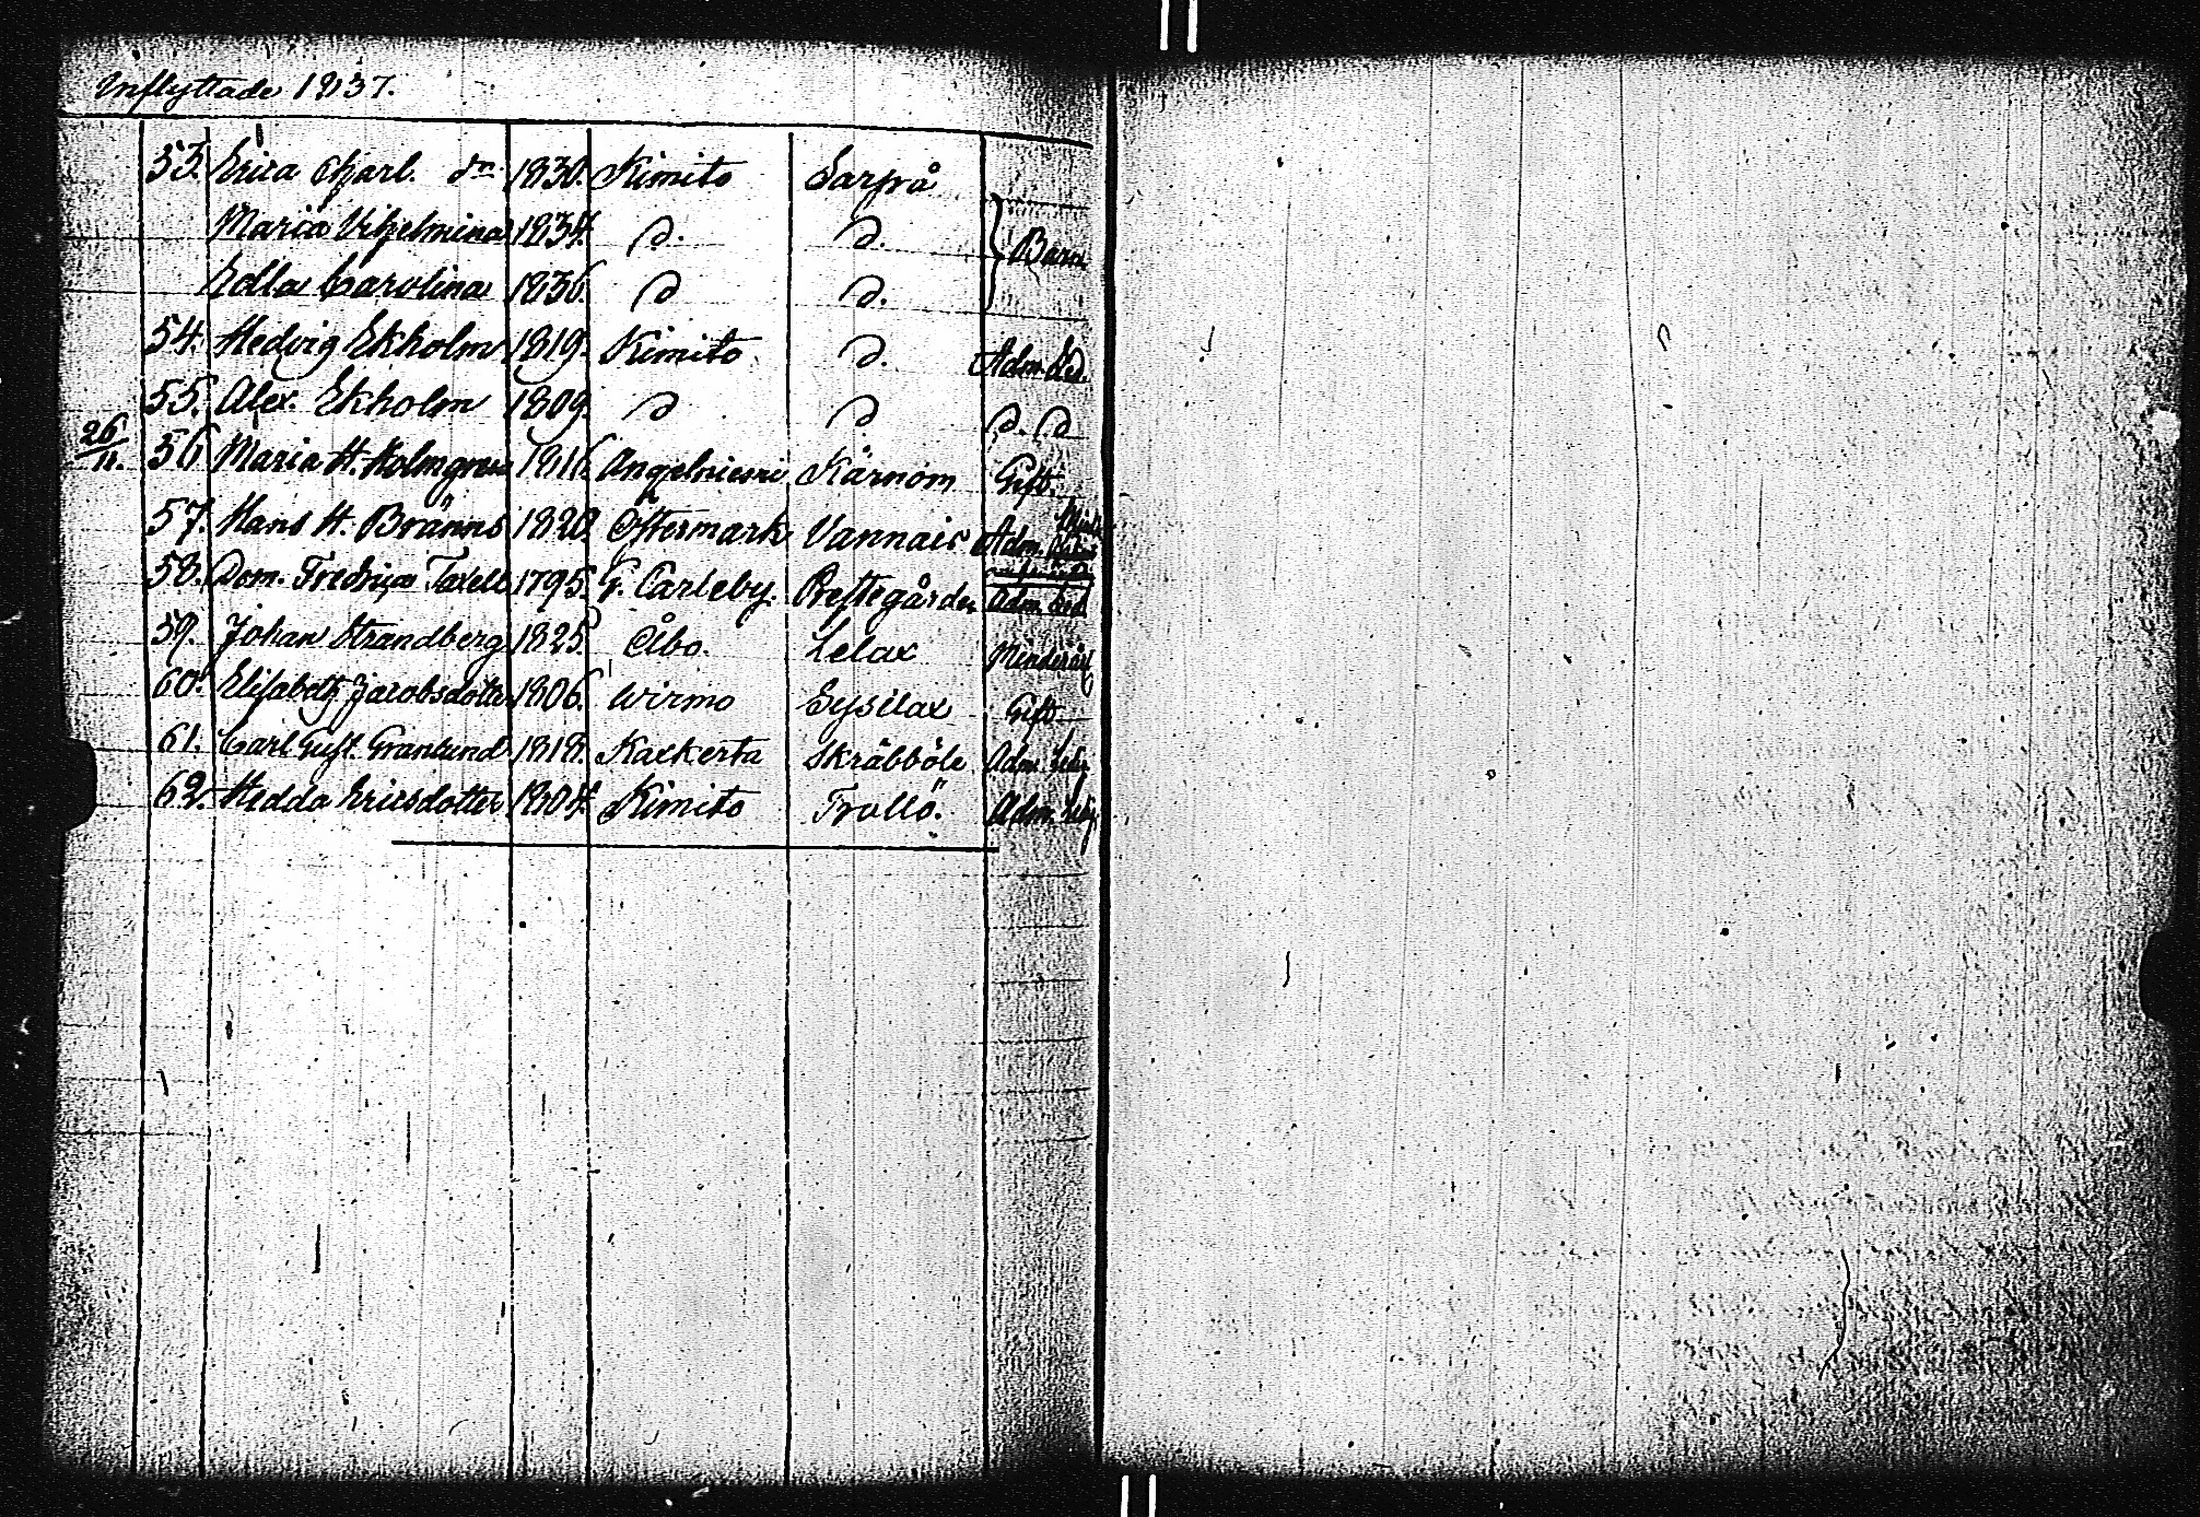 Inflyttade 1837.
53. Erica Charl. dr 1830. Kimito Sarfrå
Maria Vilhelmina 1834. d. d. } Barn
Edla Carolina 1836. d d.
54. Hedvig Ekholm 1819. Kimito d. Adm. Led.
55. Alex. Ekholm 1809. d d d. d
26/11. 56 Maria H. Holmgren 1816. Angelniemi Kärnom Gift.
57. Hans H. Bränns 1820 Östermark Vannais Adm.
58. Dem. Fredrica Taxell 1795. G. Carleby. Prestegården Adm. Led
59. Johan Strandberg 1825. Åbo. Lelax Minderårig
60. Elisabeth Jacobsdotter 1806. Wirmo Sysilax Gift
61. Carl Gust. Granlund 1818. Kackerta Skräbböle Adm. Ledig
62. Hedda Ericsdotter 1804. Kimito Trollö. Adm. Ledig